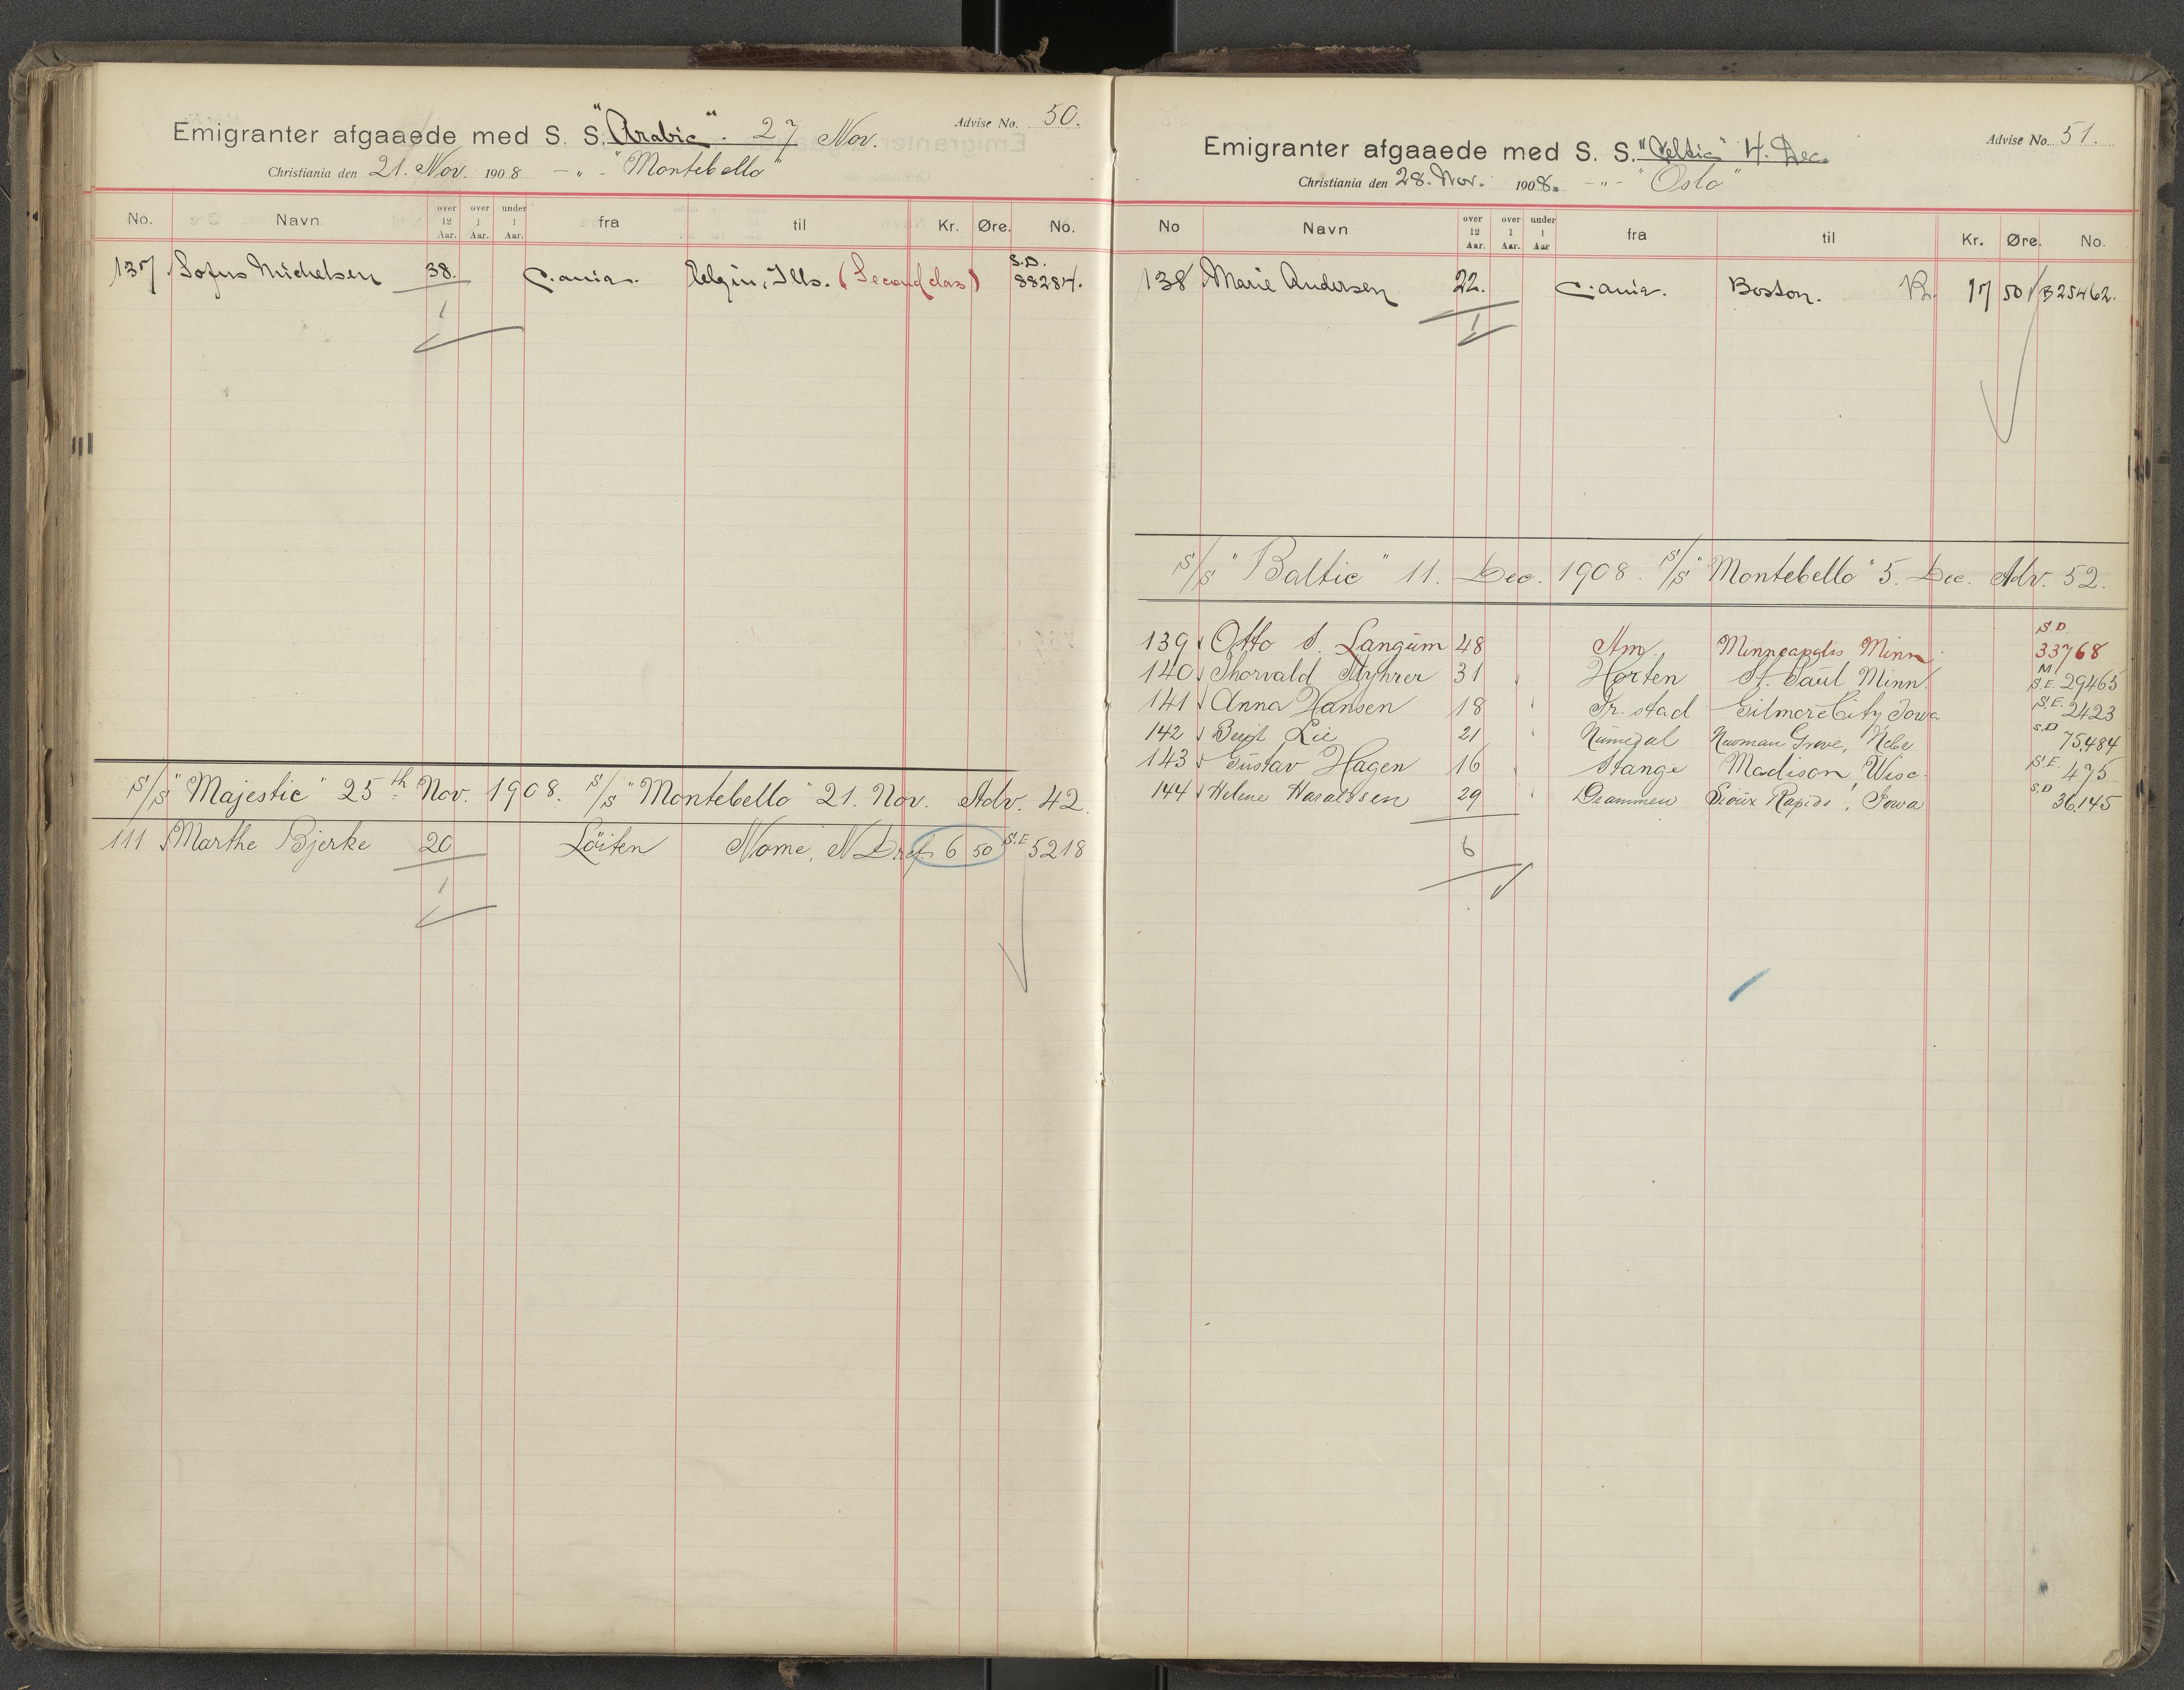 Emigranter afgaaede med S. S. "Arabic". 27 Nov. Advise No. 50.
Christiania den 21. Nov. 1908 — " - "Montebello"
No. Navn over 12 Aar. over 1 Aar. under 1 Aar. fra til Kr. Øre. No.
137 Sofus Michelsen 38. C.ania. Elgin, Ills. (Second class) S.D. 88284.
1
S/S "Majestic" 25th Nov. 1908. S/S "Montebello" 21. Nov. Adv. 42.
111 Marthe Bjerke 20 Löiten Nome, N.D. 6 50 S.E 5218
1
Emigranter afgaaede med S. S. "Celtic" 4. Dec. Advise No. 51.
Christiania den 28. Nov. 1908. - " - "Oslo"
No Navn over 12 Aar. over 1 Aar. under 1 Aar fra til Kr. Øre. No.
138 Marie Andersen 22. C.ania. Boston. 17 50 B 25462.
1
S/S "Baltic" 11. Dec. 1908. S/S "Montebello" 5. Dec. Adv. 52.
139 Otto S. Langum 48 Am. Minneapolis Minn S.D 33768
140 Thorvald Myhrer 31 Horten St. Paul Minn. M S.E. 29465
141 Anna Hansen 18 Fr. stad Gilmore City Iowa S.E. 2423
142 Bergt Lie 21 Numedal Newman Grove, Nebr S.D 75,484
143 Gustav Hagen 16 Stange Madison, Wisc. S.E. 475
144 Helene Haraldsen 29 Drammen Sioux Rapids, Iowa S.D 36,145
6